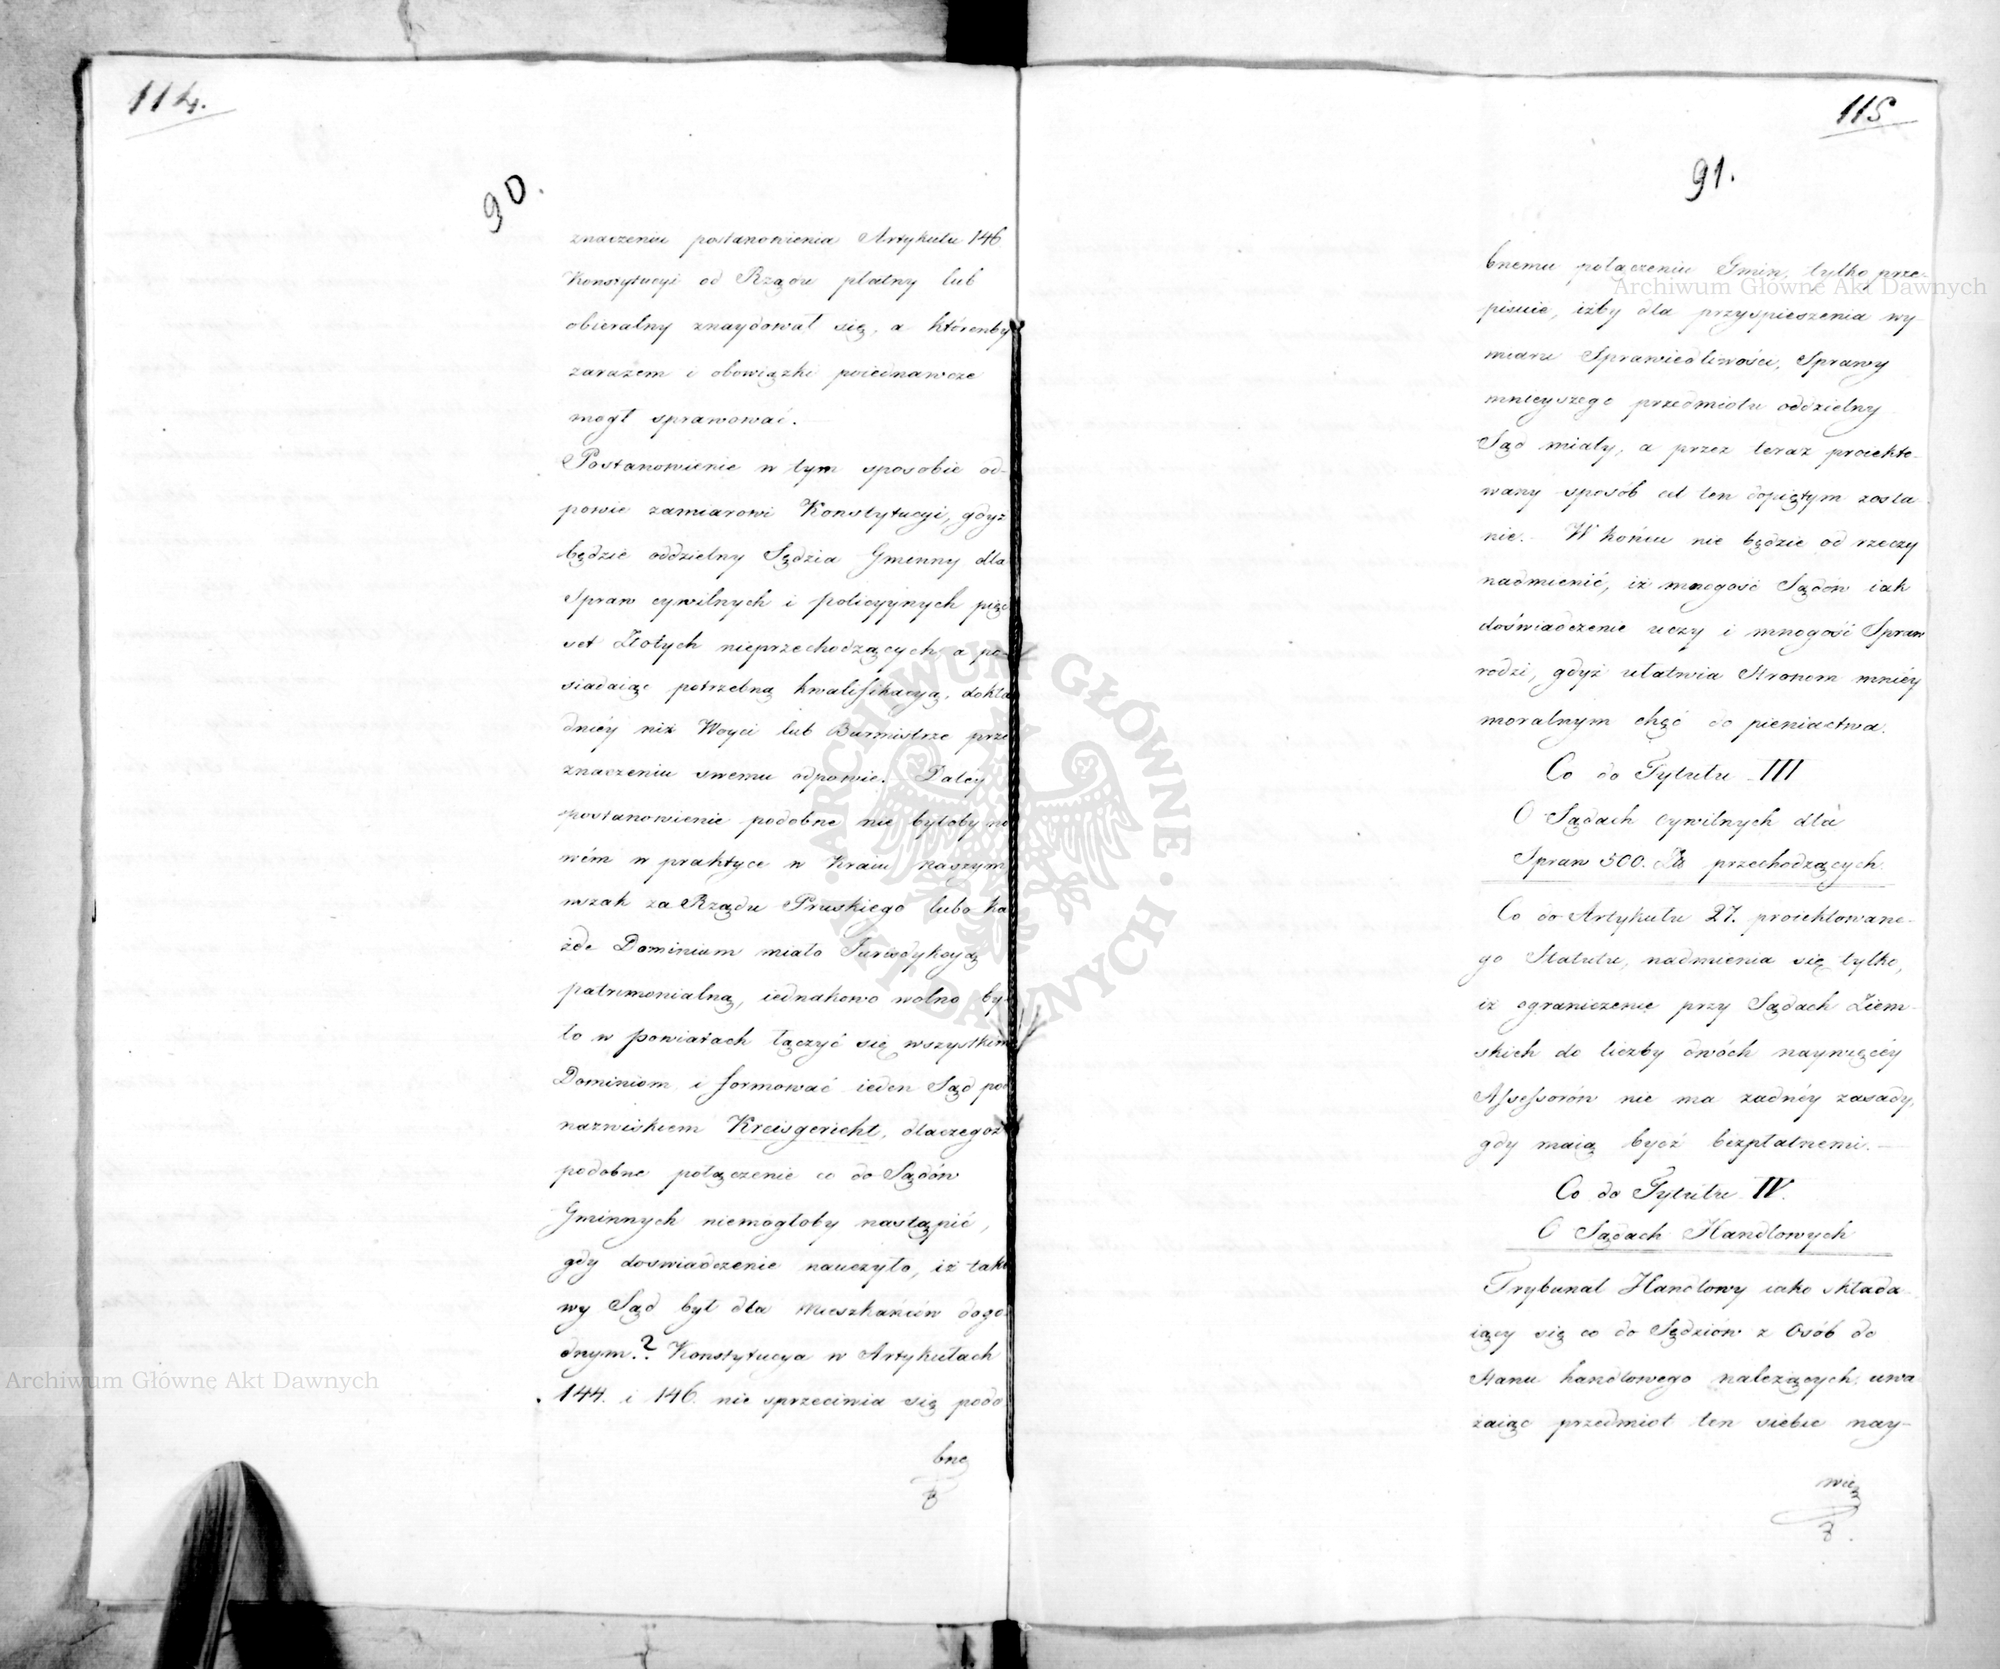 114.
90.
znaczeniu postanowienia Artykułu 146
Konstytucyi od Rządu płatny lub
obieralny znaydował się, a którenby
zarazem i obowiązki poiednawcze
mógł sprawować.
Postanowienie w tym sposobie od-
powie zamiarowi Konstytucyi, gdyż
będzie oddzielny Sędzia Gminny dla
Spraw cywilnych i policyjnych pięc
set Złotych nieprzechodzących, a po-
siadaiąc potrzebną kwalifikacyą, dokła
dniéy niż Woyci lub Burmistrze prze
znaczeniu swemu odpowie. Daléy
postanowienie podobne nie byłoby no
wém w praktyce w Kraiu naszym,
wszak za Rządu Pruskiego lubo ka
żde Dominium miało Jurisdykcyą
patrimonialną, iednakowo wolno by-
ło w powiatach łączyć się wszystkim
Dominiom i formować ieden Sąd pod
nazwiskiem Kreisgericht, dlaczegoż
podobne połączenie co do Sądów
Gminnych niemogłoby nastąpić,
gdy doswiadczenie nauczyło, iż tako
wy Sąd był dla Mieszkańców dogo
dnym.? Konstytucya w Artykułach
144. i 146. nie sprzeciwia się podo
bne
115
91.
bnemu połączeniu Gmin, tylko prze-
pisuie, iżby dla przyspieszenia wy-
miaru Sprawiedliwości, Sprawy
mnieyszego przedmiotu oddzielny
Sąd miały, a przez teraz proiekto-
wany sposób cel ten dopiętym zosta
nie. W końcu nie będzie od rzeczy
nadmienić, iż mnogość Sądów iak
doświadczenie uczy i mnogość Spraw
rodzi, gdyż ułatwia Stronom mniéy
moralnym chęć do pieniactwa.
Co do Tytułu III
O Sądach Cywilnych dla
Spraw 500. Zł. przechodzących.
Co do Artykułu 27. proiektowane-
go Statutu, nadmienia się tylko,
iż ograniczenie przy Sądach Ziem-
skich do liczby dwóch naywięcéy
Assessorów nie ma żadnéy zasady,
gdy maią bydź bezpłatnemi.
Co do Tytułu IV.
O Sądach Handlowych
Trybunał Handlowy iako składa-
iący się co do Sędziów z Osób do
Stanu handlowego należących, uwa
żaiąc przedmiot ten siebie nay-
wię
Archiwum Główne Akt Dawnych
Archiwum Główne Akt Dawnych
ARCHIWUM GŁÓWNE AKT DAWNYCH